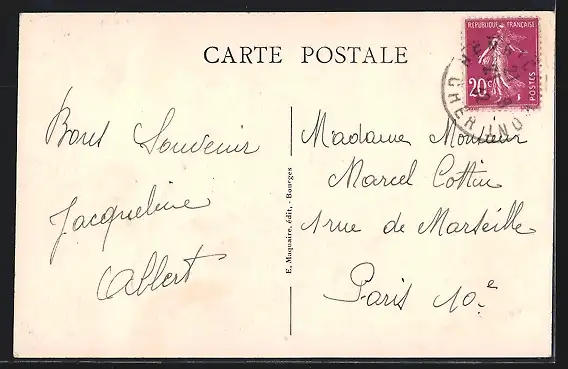 CARTE POSTALE
REPUBLIQUE FRANÇAISE
20c
POSTES
CHER
Bons Souvenir
Jacqueline
E. Maquaire, édit. - Bourges
Madame Monsieur
Marcel Cottin
1 rue de Marseille
Paris 10.e